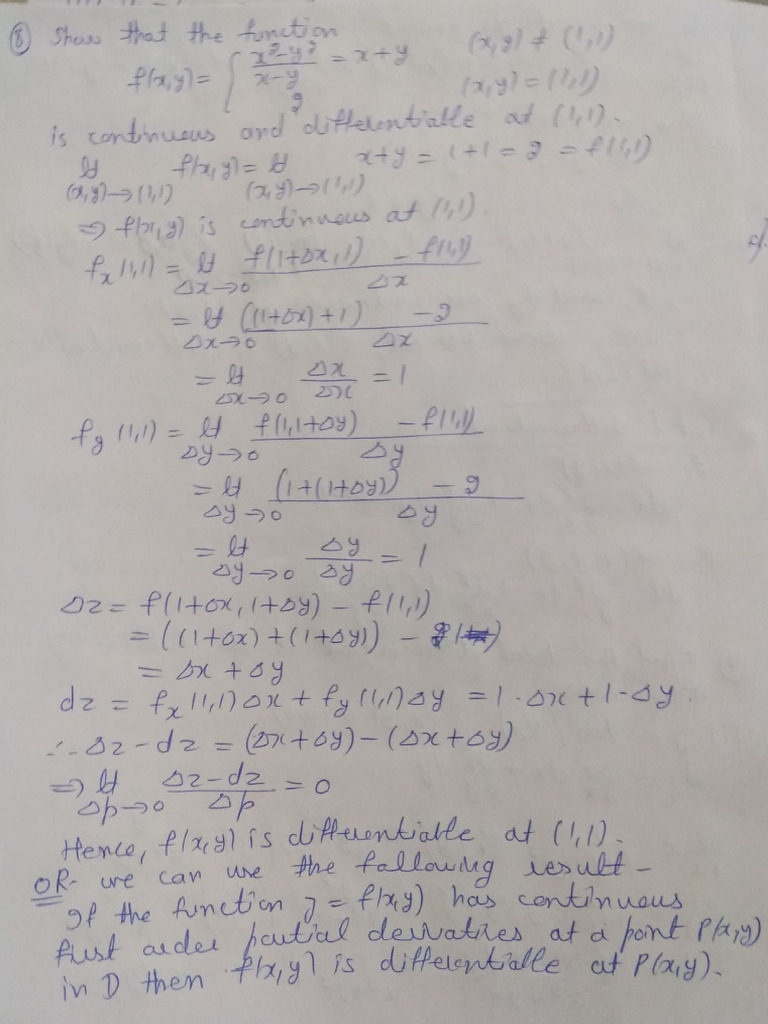 ⑧ Show that the function
f(x,y) = { x²-y²/x-y = x+y (x,y) ≠ (1,1)
2 (x,y) = (1,1)
is continuous and differentiable at (1,1).
lt (x,y)→(1,1) f(x,y) = lt (x,y)→(1,1) x+y = 1+1 = 2 = f(1,1)
⇒ f(x,y) is continuous at (1,1).
fx (1,1) = lt Δx→0 f(1+Δx,1) - f(1,1) / Δx
= lt Δx→0 ((1+Δx)+1) - 2 / Δx
= lt Δx→0 Δx/Δx = 1
fy (1,1) = lt Δy→0 f(1,1+Δy) - f(1,1) / Δy
= lt Δy→0 (1+(1+Δy)) - 2 / Δy
= lt Δy→0 Δy/Δy = 1
Δz = f(1+Δx, 1+Δy) - f(1,1)
= ((1+Δx)+(1+Δy)) - 2
= Δx + Δy
dz = fx (1,1) Δx + fy (1,1) Δy = 1·Δx + 1·Δy.
∴ Δz - dz = (Δx+Δy) - (Δx+Δy)
⇒ lt Δρ→0 Δz-dz/Δρ = 0
Hence, f(x,y) is differentiable at (1,1).
OR- we can use the following result -
If the function z = f(x,y) has continuous
first order partial derivatives at a point P(x,y)
in D then f(x,y) is differentiable at P(x,y).